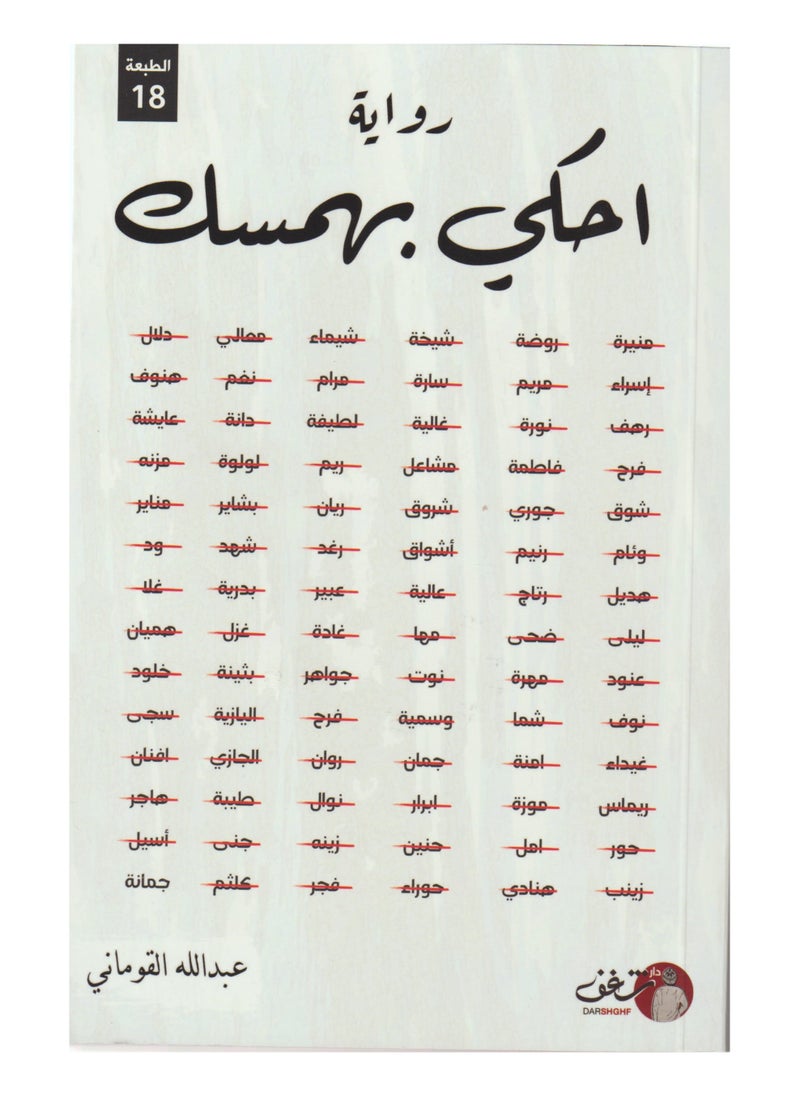 الطبعة
18
رواية
احكي بهمسك
منيرة روضة شيخة شيماء معالي دلال
إسراء مريم سارة مرام نغم هنوف
رهف نورة غالية لطيفة دانة عايشة
فرح فاطمة مشاعل ريم لولوة مزنه
شوق جوري شروق ريان بشاير مناير
وئام رنيم أشواق رغد شهد ود
هديل رتاج عالية عبير بدرية غلا
ليلى ضحى مها غادة غزل هميان
عنود مهرة نوت جواهر بثينة خلود
نوف شما وسمية فرح اليازية سجى
غيداء امنة جمان روان الجازي افنان
ريماس موزة ابرار نوال طيبة هاجر
حور امل حنين زينه جنى أسيل
زينب هنادي حوراء فجر كلثم جمانة
عبدالله القوماني
دار شغف
DARSHGHF